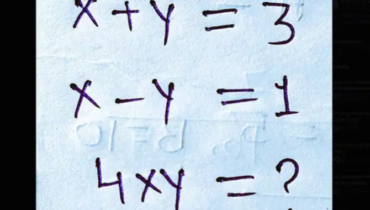 x + y = 3
x - y = 1
4xy = ?